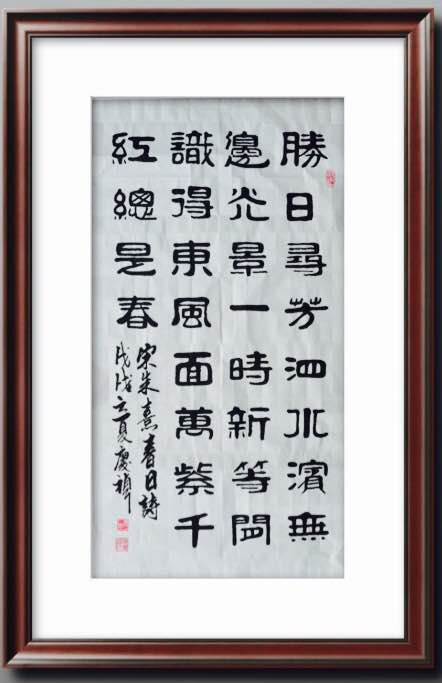 勝日尋芳泗水濱無
邊光景一時新等閒
識得東風面萬紫千
紅總是春
宋朱熹春日詩
戊戌立夏慶